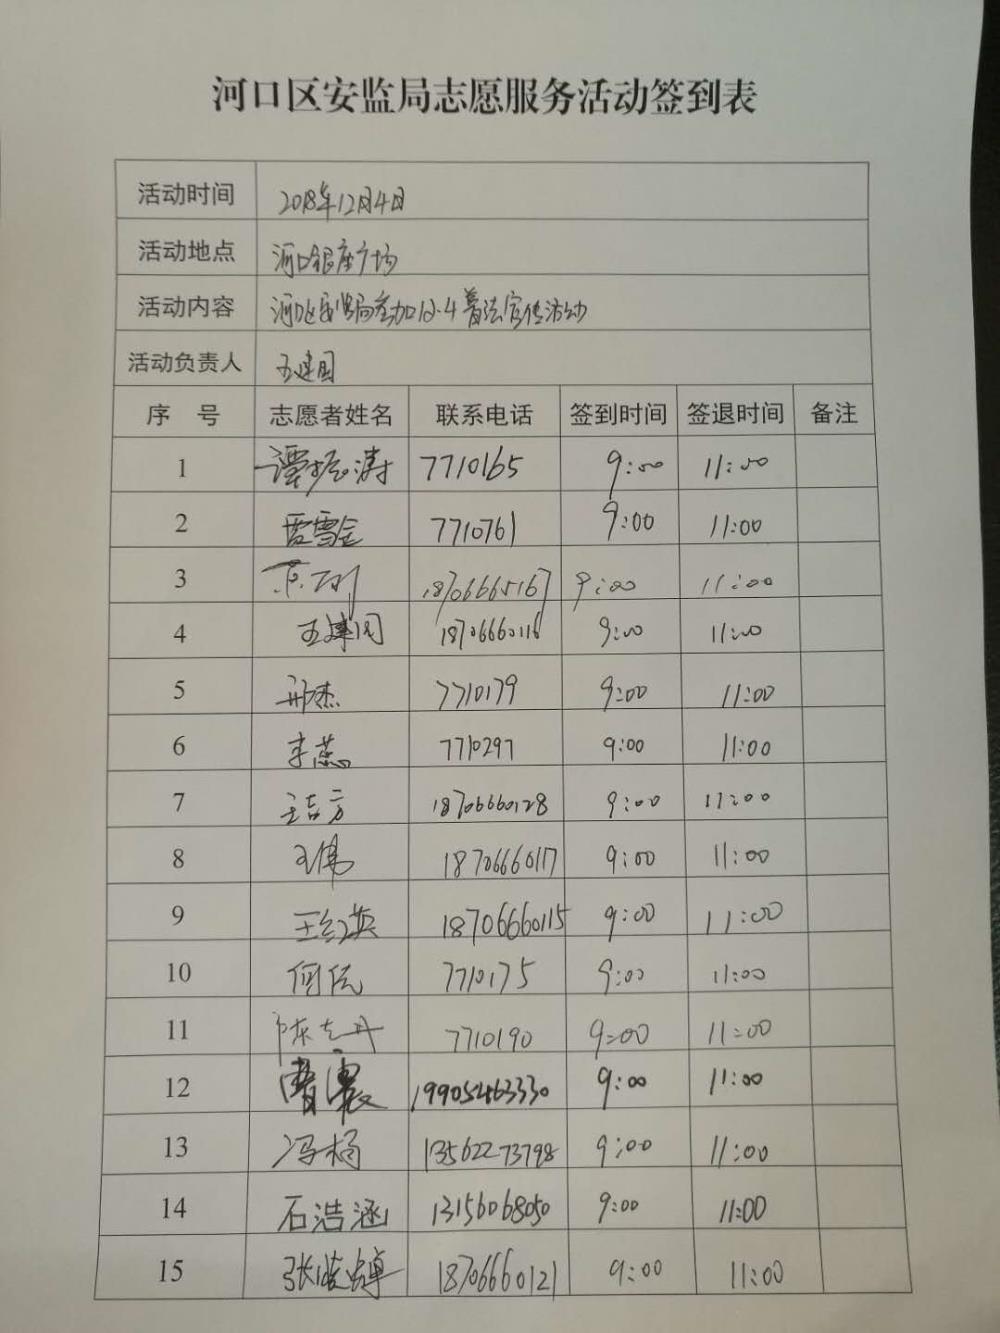 河口区安监局志愿服务活动签到表
活动时间 2018年12月4日
活动地点 河口银座广场
活动内容 河口区安监局参加12.4普法宣传活动
活动负责人 王建国
序 号 志愿者姓名 联系电话 签到时间 签退时间 备注
1 谭振涛 7710165 9:00 11:00
2 7710761 9:00 11:00
3 18706665167 9:00 11:00
4 王建国 18706660116 9:00 11:00
5 邢杰 7710179 9:00 11:00
6 李蕊 7710297 9:00 11:00
7 王吉方 18706660128 9:00 11:00
8 王伟 18706660117 9:00 11:00
9 王红英 18706660115 9:00 11:00
10 7710175 9:00 11:00
11 陈志丹 7710190 9:00 11:00
12 19905463330 9:00 11:00
13 冯杨 13562273798 9:00 11:00
14 石浩涵 13156068050 9:00 11:00
15 18706660121 9:00 11:00